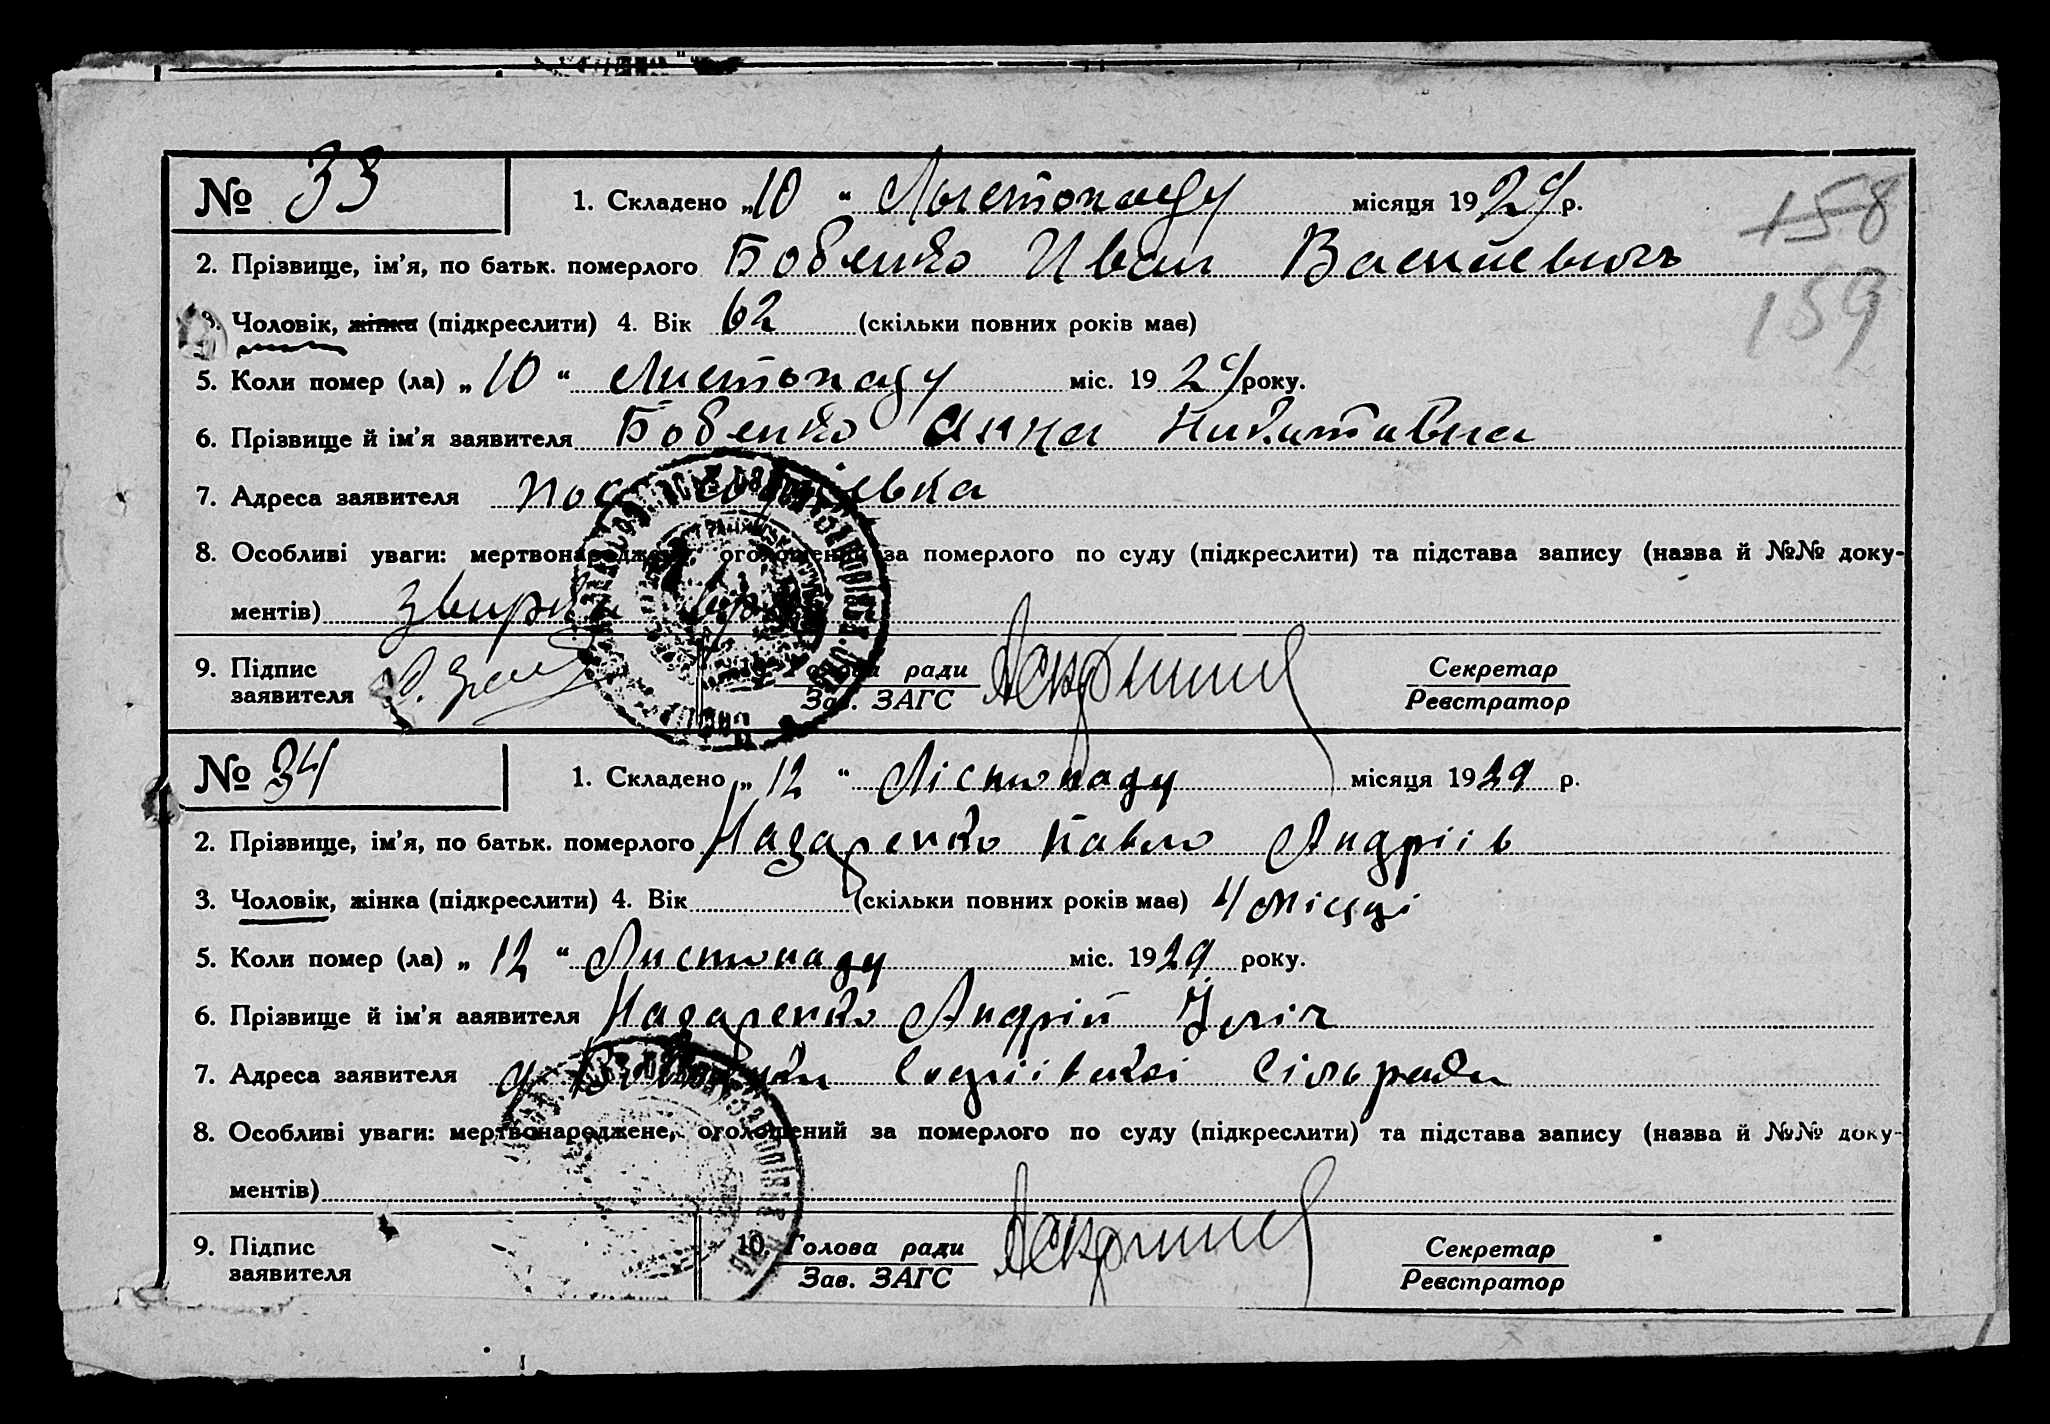 № 33
1. Складено „10“ Листопаду місяця 1929 р.
158
2. Прізвище, ім'я, по батьк. померлого Бобенко Иван Васильевичъ
159
3. Чоловік, жінка (підкреслити) 4. Вік 62 (скільки повних років має)
5. Коли помер (ла) „10“ Листопаду міс. 1929 року.
6. Прізвище й ім'я заявителя Бобенко Анна Никитавна
7. Адреса заявителя пос.
8. Особливі уваги: мертвонароджене, оголошений за померлого по суду (підкреслити) та підстава запису (назва й №№ доку-
ментів)
9. Підпис заявителя
Голова ради
Зав. ЗАГС
Секретар
Реєстратор
№ 34
1. Складено „12“ Лістопаду місяця 1929 р.
2. Прізвище, ім'я, по батьк. померлого Назаренко Павло Андріів
3. Чоловік, жінка (підкреслити) 4. Вік (скільки повних років має) 4 місиці
5. Коли помер (ла) „12“ Листопаду міс. 1929 року.
6. Прізвище й ім'я заявителя Назаренко Андрій Іліч
7. Адреса заявителя Сільради
8. Особливі уваги: мертвонароджене, оголошений за померлого по суду (підкреслити) та підстава запису (назва й №№ доку-
ментів)
9. Підпис заявителя
10. Голова ради
Зав. ЗАГС
Секретар
Реєстратор